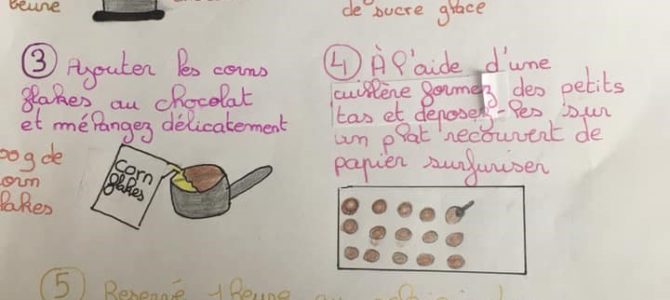 de sucre glace
③ Ajouter les corns
flakes au chocolat
et mélangez délicatement
④ À l'aide d'une
cuillère formez des petits
tas et deposez-les sur
un plat recouvert de
papier sulfuriser
00 g de
corn
flakes
corn
flakes
⑤